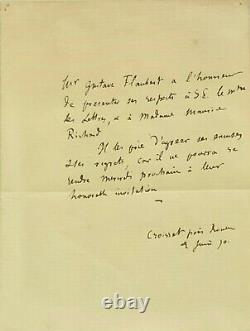 Mr Gustave Flaubert a l'honneur
de presenter ses respects à S.E. le mtre
des Lettres, & à Madame Maurice
Richard
Il les prie d'agreer ses excuses
& ses regrets, car il ne pourra se
rendre mercredi prochain à leur
honorable invitation
Croisset près Rouen
Juin 70.
ebay